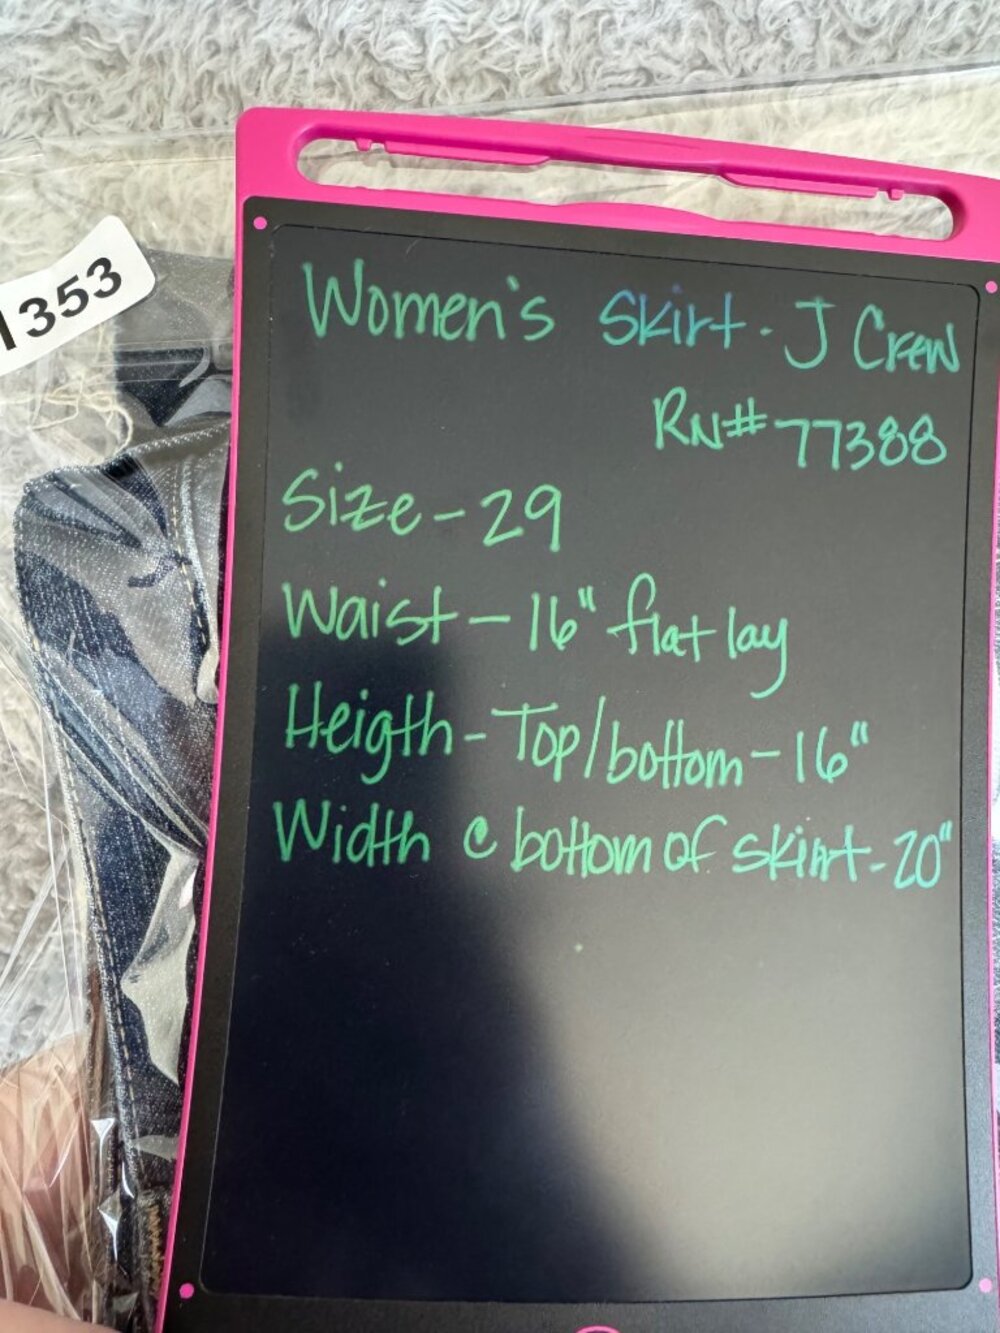 1353
Women's Skirt - J Crew
RN# 77388
Size - 29
Waist - 16" flat lay
Heigth - Top/bottom - 16"
Width @ bottom of skirt - 20"